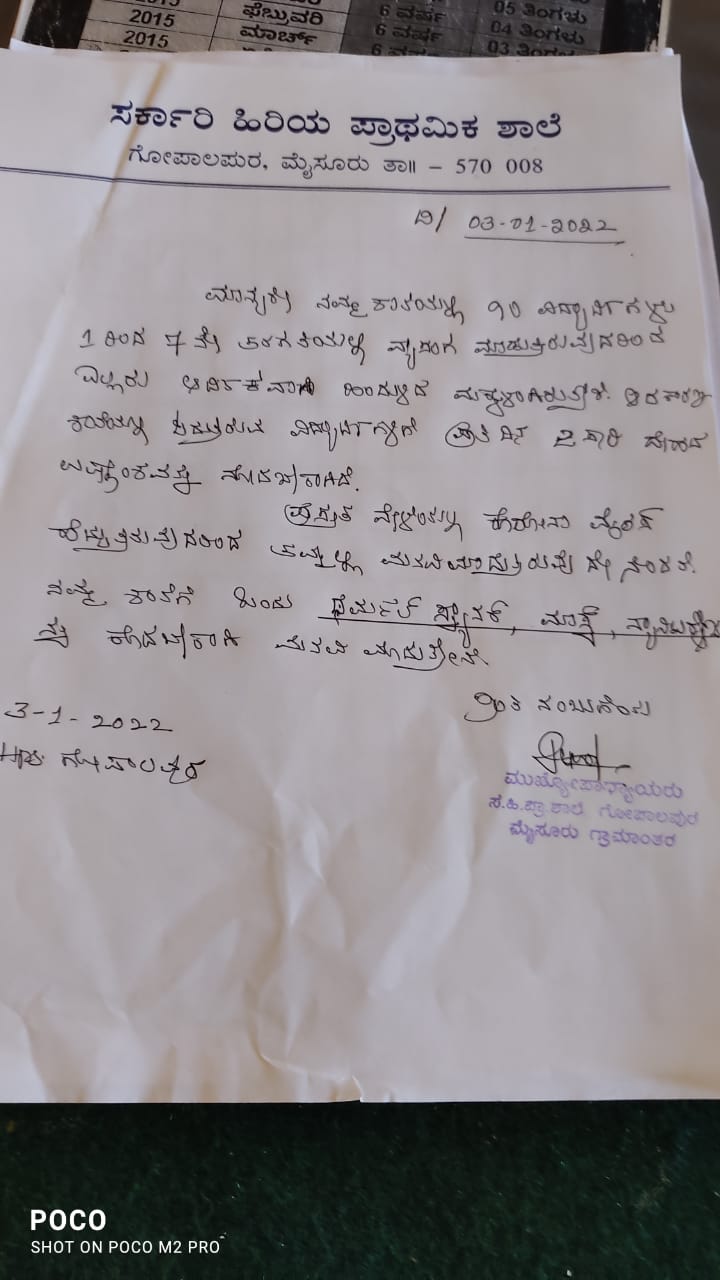 2015 ಫೆಬ್ರುವರಿ 6 ವರ್ಷ 05 ತಿಂಗಳು
2015 ಮಾರ್ಚ್ 6 ವರ್ಷ 04 ತಿಂಗಳು
6 ವರ್ಷ 03 ತಿಂಗಳು
ಸರ್ಕಾರಿ ಹಿರಿಯ ಪ್ರಾಥಮಿಕ ಶಾಲೆ
ಗೋಪಾಲಪುರ, ಮೈಸೂರು ತಾ॥ – 570 008
ದಿ/ 03-01-2022
ಮಾನ್ಯರೇ ನಮ್ಮ ಶಾಲೆಯಲ್ಲಿ 90 ವಿದ್ಯಾರ್ಥಿಗಳು
1 ರಿಂದ 7 ನೇ ತರಗತಿಯಲ್ಲಿ ವ್ಯಾಸಂಗ ಮಾಡುತ್ತಿರುವುದರಿಂದ
ಎಲ್ಲರು ಆರ್ಥಿಕವಾಗಿ ಹಿಂದುಳಿದ ಮಕ್ಕಳಾಗಿರುತ್ತಾರೆ.
ವಿದ್ಯಾರ್ಥಿಗಳಿಗೆ ಪ್ರತಿ ದಿನ 2 ಸಾರಿ ದೇಹದ
ಉಷ್ಣಾಂಶವನ್ನು ನೋಡಬೇಕಾಗಿದೆ.
ಪ್ರಸ್ತುತ ವೇಳೆಯಲ್ಲಿ ಕೊರೋನಾ ವೈರಸ್
ಹೆಚ್ಚುತ್ತಿರುವುದರಿಂದ ತಮ್ಮಲ್ಲಿ ಮನವಿ ಮಾಡುತ್ತಿರುವುದೇನೆಂದರೆ.
ನಮ್ಮ ಶಾಲೆಗೆ ಒಂದು ಥರ್ಮಲ್ ಸ್ಕ್ಯಾನರ್, ಮಾಸ್ಕ್,
ಕೊಡಬೇಕಾಗಿ ಮನವಿ ಮಾಡುತ್ತೇನೆ.
ಇಂತಿ ನಂಬುಗೆಯ
3-1-2022
ಗೋಪಾಲಪುರ
ಮುಖ್ಯೋಪಾಧ್ಯಾಯರು
ಸ.ಹಿ.ಪ್ರಾ.ಶಾಲೆ ಗೋಪಾಲಪುರ
ಮೈಸೂರು ಗ್ರಾಮಾಂತರ
POCO
SHOT ON POCO M2 PRO